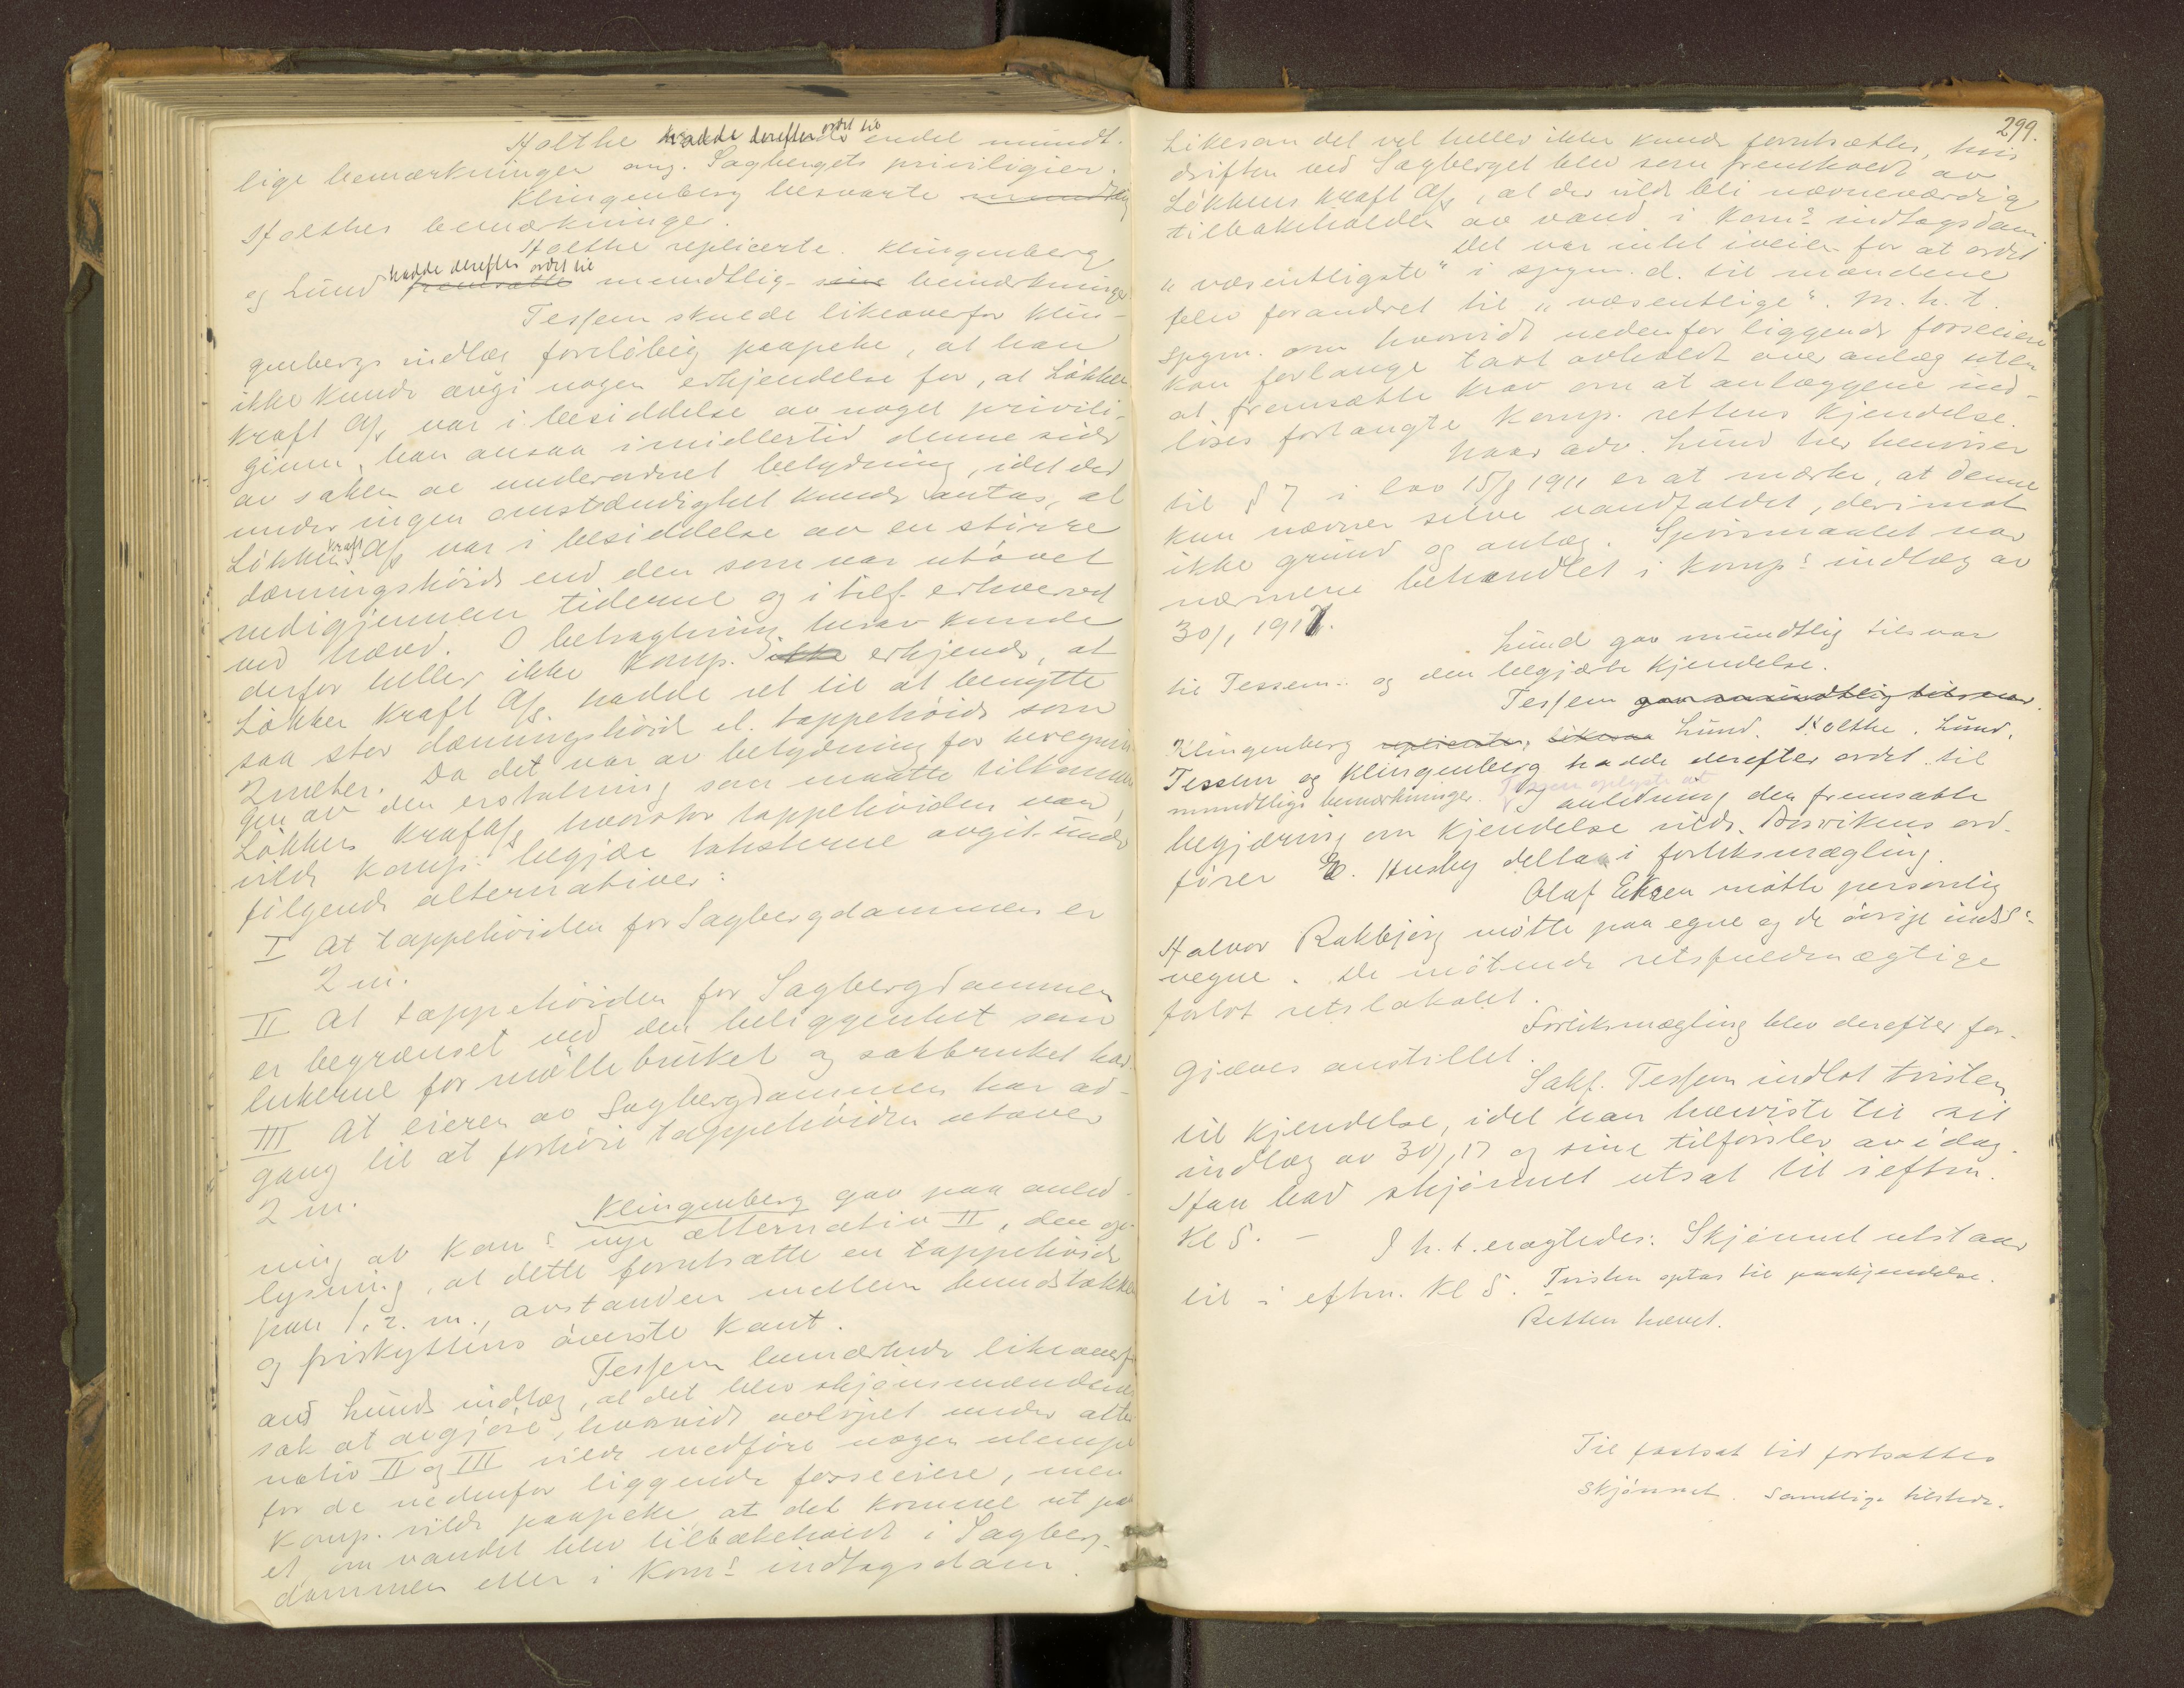 Holthe hadde derefter ordet til endel mundt-
lige bemærkninger ang. Sagbergets priviligier.
Klingenberg besvarte mundtlig
Holthes bemærkninger.
Holthe replicerte. Klingenberg
og Lund hadde derefter ordet til fremsatte mundtlig- sine bemærkninger
Tessem skulde likeoverfor Klin-
genbergs indlæg foreløbig paapeke, at han
ikke kunde avgi nogen erkjendelse for, at Løkken
Kraft A/S var i besiddelse av noget privili-
gium, han ansaa imidlertid denne side
av saken av underordnet betydning, idet der
under ingen omstændighet kunde antas, at
Løkkens Kraft A/S var i besiddelse av en større
dæmningshøide end den som var utøvet
nedigjennem tiderne og i tilf. erhvervet
ved hævd. I betragtning herav kunde
derfor heller ikke Komp. ikke erkjende, at
Løkken Kraft A/S. hadde ret til at benytte
saa stor dæmningshøid el. tappehøide som
2 meter. Da det var av betydning for beregnin-
gen av den erstatning som maatte tilkomme
Løkkens Kraft A/S hvorstor tappehøiden var,
vilde Komp. begjære taksterne avgit under
følgende alternativer:
I At tappehøiden for Sagbergdammen er
2 m.
II At tappehøiden for Sagbergdammen
er begrænset ved den beliggenhet som
lukerne for møllebruket og sakbruket har.
III At eieren av Sagbergdammen har ad-
gang til at forhøie tappehøiden utover
2 m.
Klingenberg gav paa anled-
ning av Kom.s nye alternativ II, den op-
lysning, at dette forutsatte en tappehøide
paa 1,2. m., avstanden mellem bundstokken
og friskyttens øverste kant.
Tessem bemærkede likeoverfor
adv. Lunds indlæg, at det blev skjønsmændenes
sak at avgjøre, hvorvidt avløpet under alter-
nativ II og III vilde medføre nogen ulempe
for de nedenfor liggende fosseeiere, men
Komp. vilde paapeke at det kommer ut paa
et, om vandet blev tilbakeholdt i Sagberg-
dammen eller i Kom.s indtagsdam.
299.
Likesom det vel heller ikke kunde forutsættes, hvis
driften ved Sagberget blev som fremholdt av
Løkkens Kraft A/S, at der vilde bli nævneværdig
tilbakeholden av vand i Kom.s indtagsdam.
Det var intet iveien for at ordet
"væsentligste" i spgm. d. til mændene
blev forandret til "væsentlige". M. h. t.
spgm. om hvorvidt nedenfor liggende fosseeiere
kan forlange takst avholdt over anlæg uten
at fremsætte krav om at anlæggene ind-
løses forlangte Komp. rettens kjendelse.
Naar adv. Lund her henviser
til § 7 i lov 15/8 1911 er at mærke, at denne
kun nævner selve vandfaldet, derimot
ikke grund og anlæg. Spørsmaalet var
nærmere behandlet i Komp.s indlæg av
30/1 1917.
Lund gav mundtlig tilsvar
til Tessem.. og den begjærte kjendelse.
Tessem gav mundtlig tilsvar.
Klingenberg replicerte, likesaa Lund. Holthe. Lund.
Tessem og Klingenberg hadde derefter ordet til
mundtlige bemærkninger. Tessem oplyste at I anledning den fremsatte
begjæring om kjendelse vilde Børvikens ord-
fører E. Husby deltaa i forliksmægling.
Olaf Eksen møtte personlig
Halvor Rakbjørg møtte paa egne og de øvrige inds.s
vegne. De møtende retsfuldmægtige
forlot retslokalet.
Forliksmægling blev derefter for-
gjæves anstillet.
Sakf. Tessem indlot tvisten
til kjendelse, idet han henviste til sit
indlæg av 30/1 17 og sine tilførsler av idag.
Han bad skjønnet utsat til i eftm.
Kl 5. -
I h. t. eragtedes: Skjønnet utstaar
til i eftm. Kl 5. Tvisten optas til paakjendelse.
Retten hævet.
Til fastsat tid fortsattes
skjønnet. Samtlige tilstede.